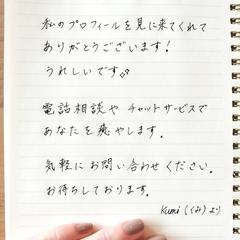 私のプロフィールを見に来てくれて
ありがとうございます!
うれしいです
電話相談や チャットサービスで
あなたを癒やします.
気軽にお問い合わせください.
お待ちしております.
Kumi (くみ)より